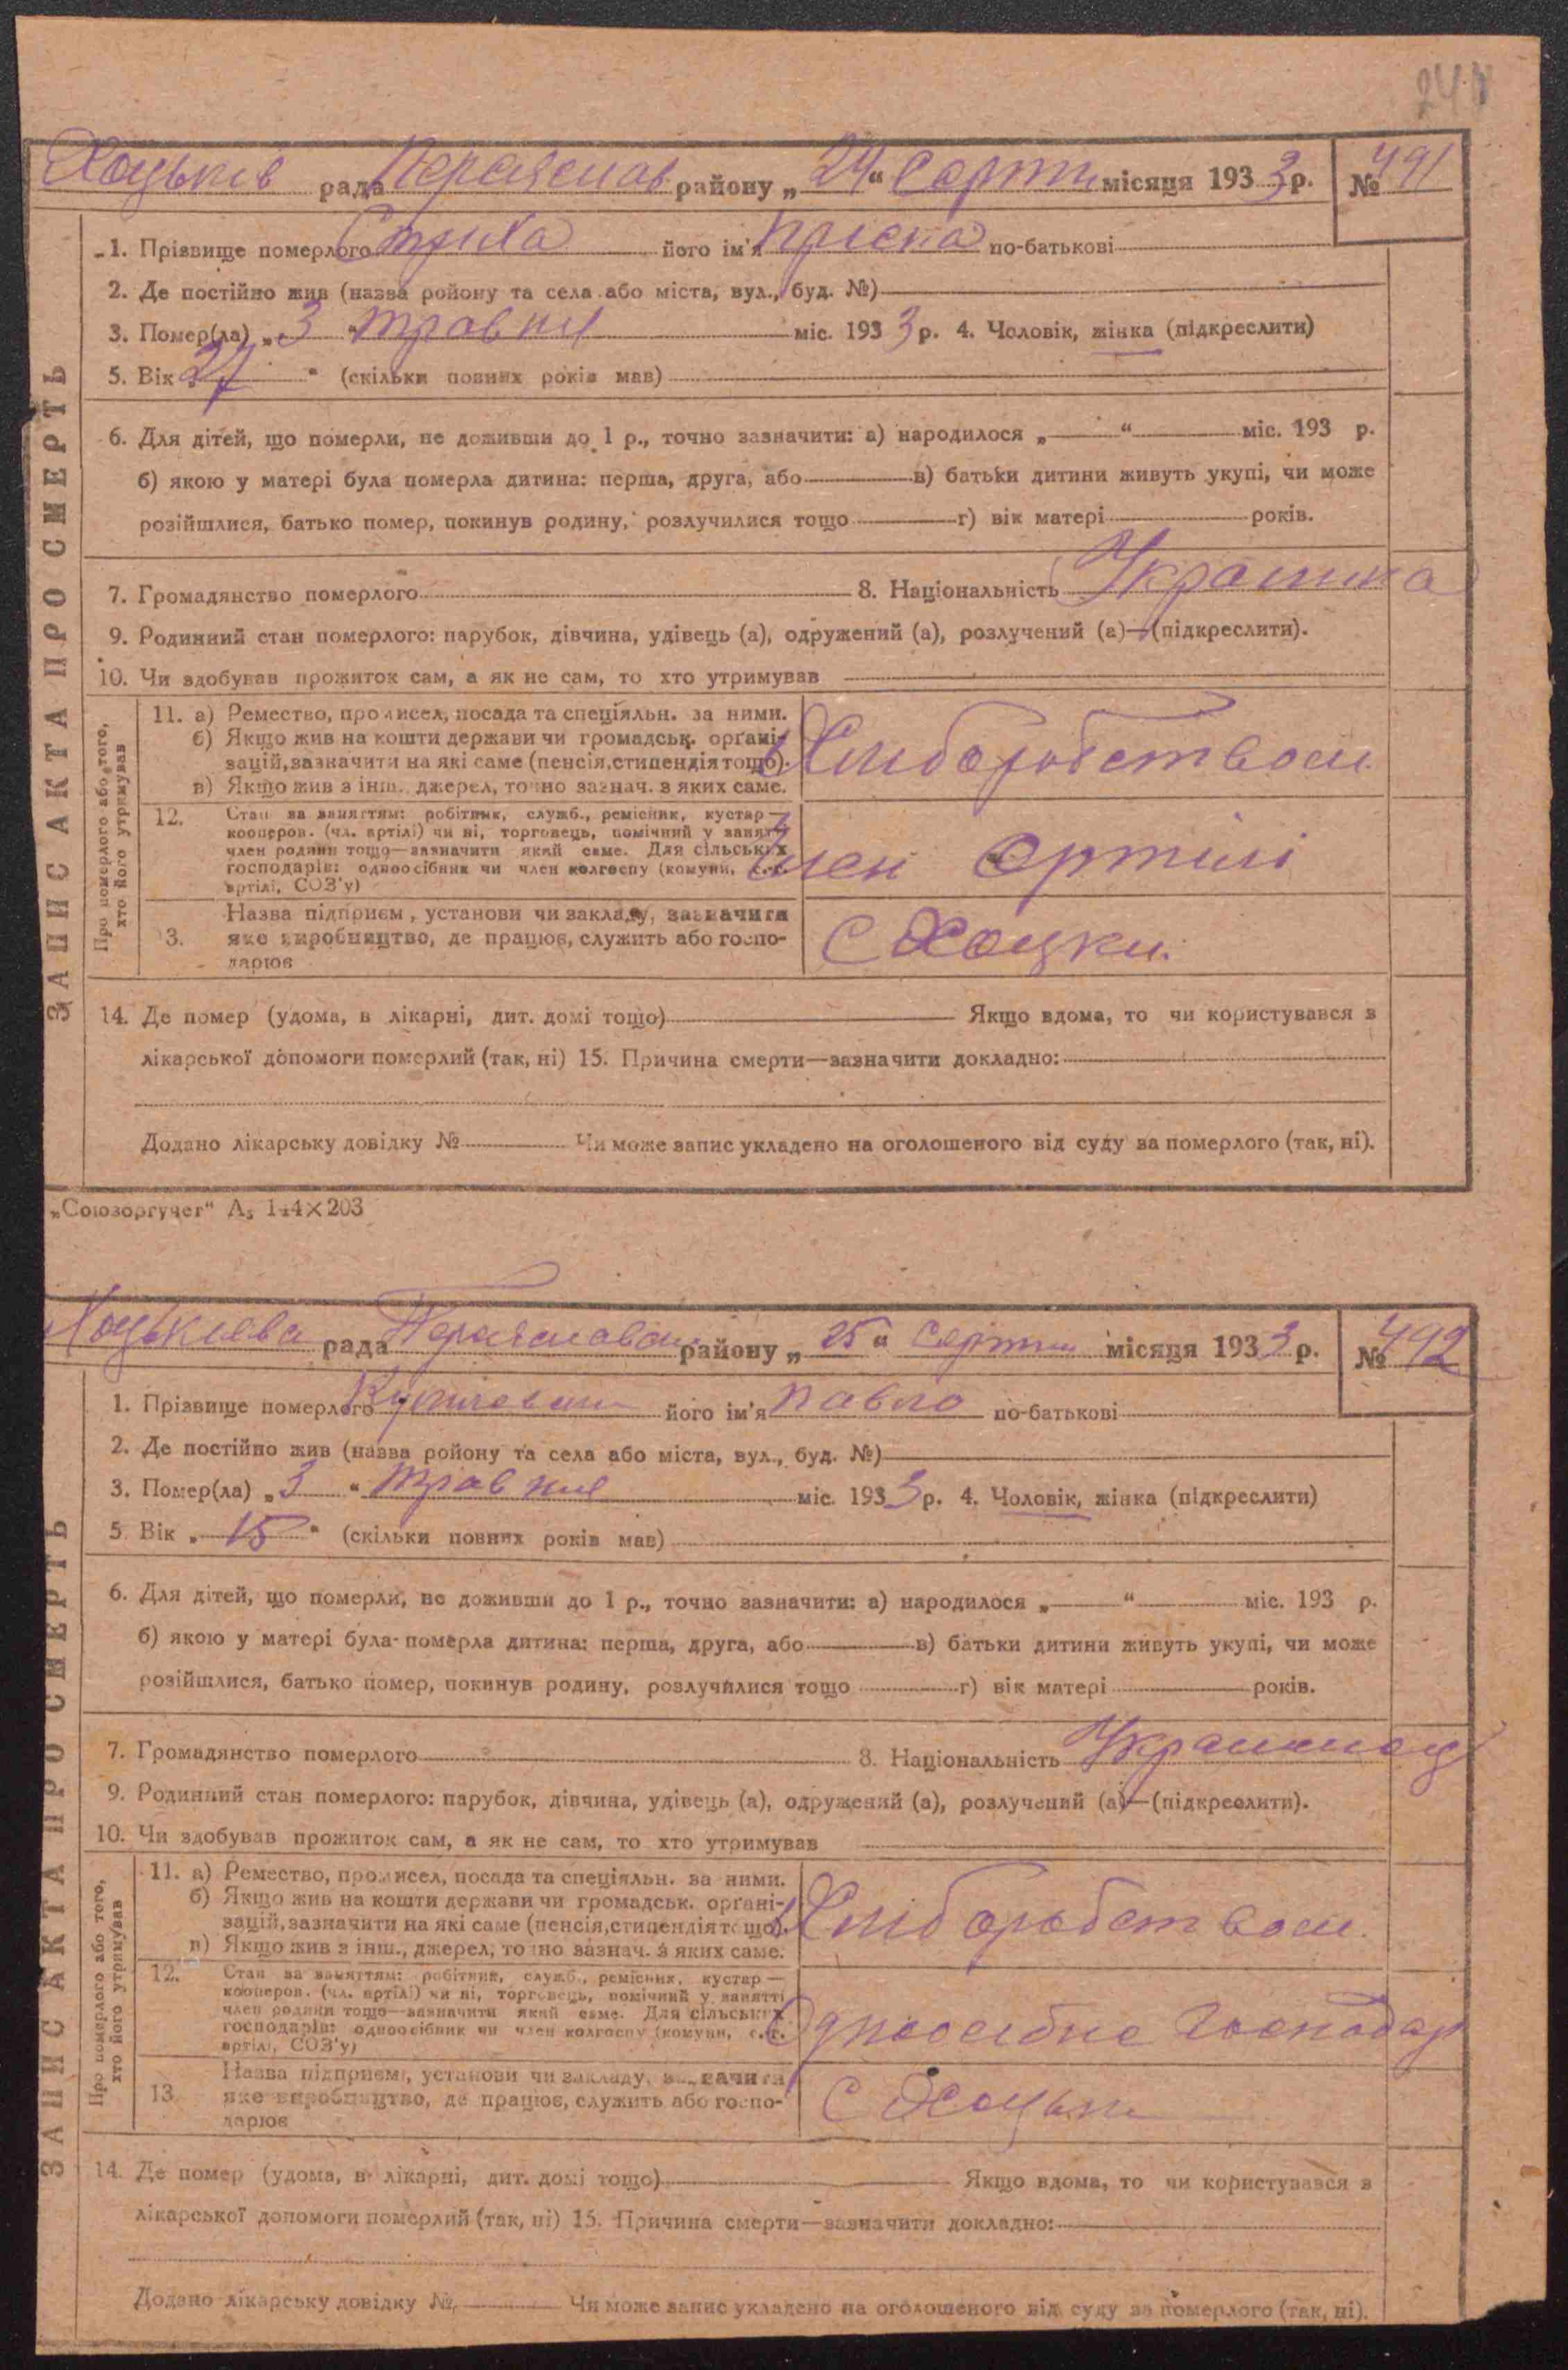 Хоцьків рада Переяслав району „ 24 “ Серпня місяця 1933 р. № 491
1. Прізвище померлого Стриха його ім'я Пріська по-батькові
2. Де постійно жив (назва ройону та села або міста, вул., буд. №)
3. Помер(ла) „ 3 “ травня міс. 1933 р. 4. Чоловік, жінка (підкреслити)
5. Вік 27 “ (скільки повних років мав)
6. Для дітей, що померли, не доживши до 1 р., точно зазначити: а) народилося „ “ міс. 193 р.
б) якою у матері була померла дитина: перша, друга, або в) батьки дитини живуть укупі, чи може
розійшлися, батько помер, покинув родину, розлучилися тощо г) вік матері років.
7. Громадянство померлого 8. Національність Украинка
9. Родинний стан померлого: парубок, дівчина, удівець (а), одружений (а), розлучений (а)—(підкреслити).
10. Чи здобував прожиток сам, а як не сам, то хто утримував
11. а) Ремество, промисел, посада та спеціяльн. за ними.
б) Якщо жив на кошти держави чи громадськ. орґані-
зацій, зазначити на які саме (пенсія, стипендія тощо).
в) Якщо жив з інш., джерел, точно зазнач. з яких саме.
Хліборобством
12. Стан за заняттям: робітник, служб., ремісник, кустар—
кооперов. (чл. артілі) чи ні, торговець, помічний у занятті
член родини тощо—зазначити який саме. Для сільських
господарів: одноосібник чи член колгоспу (комуни, с.-г.
артілі, СОЗ'у)
Член Артілі
3. Назва підприєм., установи чи закладу, зазначити
яке виробництво, де працює, служить або госпо-
дарює
С Хоцки.
Про померлого або того,
хто його утримував
14. Де помер (удома, в лікарні, дит. домі тощо) Якщо вдома, то чи користувався з
лікарської допомоги померлий (так, ні) 15. Причина смерти—зазначити докладно:
Додано лікарську довідку № Чи може запис укладено на оголошеного від суду за померлого (так, ні).
ЗАПИС АКТА ПРО СМЕРТЬ
„Союзоргучет“ А5 144×203
Хоцьківська рада району „ 25 “ Серпня місяця 1933 р. № 492
1. Прізвище померлого його ім'я Павло по-батькові
2. Де постійно жив (назва ройону та села або міста, вул., буд. №)
3. Помер(ла) „ 3 “ травня міс. 1933 р. 4. Чоловік, жінка (підкреслити)
5. Вік „ 15 “ (скільки повних років мав)
6. Для дітей, що померли, не доживши до 1 р., точно зазначити: а) народилося „ “ міс. 193 р.
б) якою у матері була померла дитина: перша, друга, або в) батьки дитини живуть укупі, чи може
розійшлися, батько помер, покинув родину, розлучилися тощо г) вік матері років.
7. Громадянство померлого 8. Національність Украинець
9. Родинний стан померлого: парубок, дівчина, удівець (а), одружений (а), розлучений (а)—(підкреслити).
10. Чи здобував прожиток сам, а як не сам, то хто утримував
11. а) Ремество, промисел, посада та спеціяльн. за ними.
б) Якщо жив на кошти держави чи громадськ. орґані-
зацій, зазначити на які саме (пенсія, стипендія тощо).
в) Якщо жив з інш., джерел, точно зазнач. з яких саме.
Хліборобством
12. Стан за заняттям: робітник, служб., ремісник, кустар—
кооперов. (чл. артілі) чи ні, торговець, помічний у занятті
член родини тощо—зазначити який саме. Для сільських
господарів: одноосібник чи член колгоспу (комуни, с.-г.
артілі, СОЗ'у)
Одноосібне господар
13. Назва підприєм., установи чи закладу, зазначити
яке виробництво, де працює, служить або госпо-
дарює
С Хоцьки
Про померлого або того,
хто його утримував
14. Де помер (удома, в лікарні, дит. домі тощо) Якщо вдома, то чи користувався з
лікарської допомоги померлий (так, ні) 15. Причина смерти—зазначити докладно:
Додано лікарську довідку № Чи може запис укладено на оголошеного від суду за померлого (так, ні).
ЗАПИС АКТА ПРО СМЕРТЬ